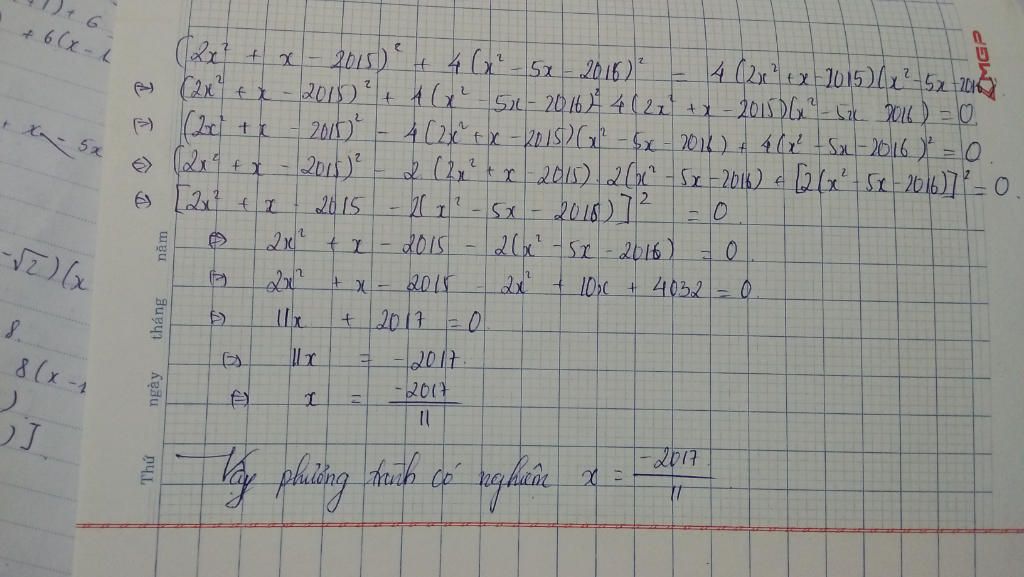 + 6
+ 6(x - 1
+ x - 5x
- √2)(x
8.
8(x - 1
)
)]
(2x² + x - 2015)² + 4(x² - 5x - 2016)² = 4(2x² + x - 2015)(x² - 5x - 2016)
MGP
(=) (2x² + x - 2015)² + 4(x² - 5x - 2016)² 4(2x² + x - 2015)(x² - 5x 2016) = 0
(=) (2x² + x - 2015)² - 4(2x² + x - 2015)(x² - 5x - 2016) + 4(x² - 5x - 2016)² = 0.
(=) (2x² + x - 2015)² - 2.(2x² + x - 2015).2(x² - 5x - 2016) + [2(x² - 5x - 2016)]² = 0.
(=) [2x² + x - 2015 - 2(x² - 5x - 2016)]² = 0.
(=) 2x² + x - 2015 - 2(x² - 5x - 2016) = 0.
(=) 2x² + x - 2015 - 2x² + 10x + 4032 = 0.
(=) 11x + 2017 = 0.
(=) 11x = -2017.
(=) x = -2017/11
Vậy phương trình có nghiệm x = -2017/11.
Thứ ngày tháng năm